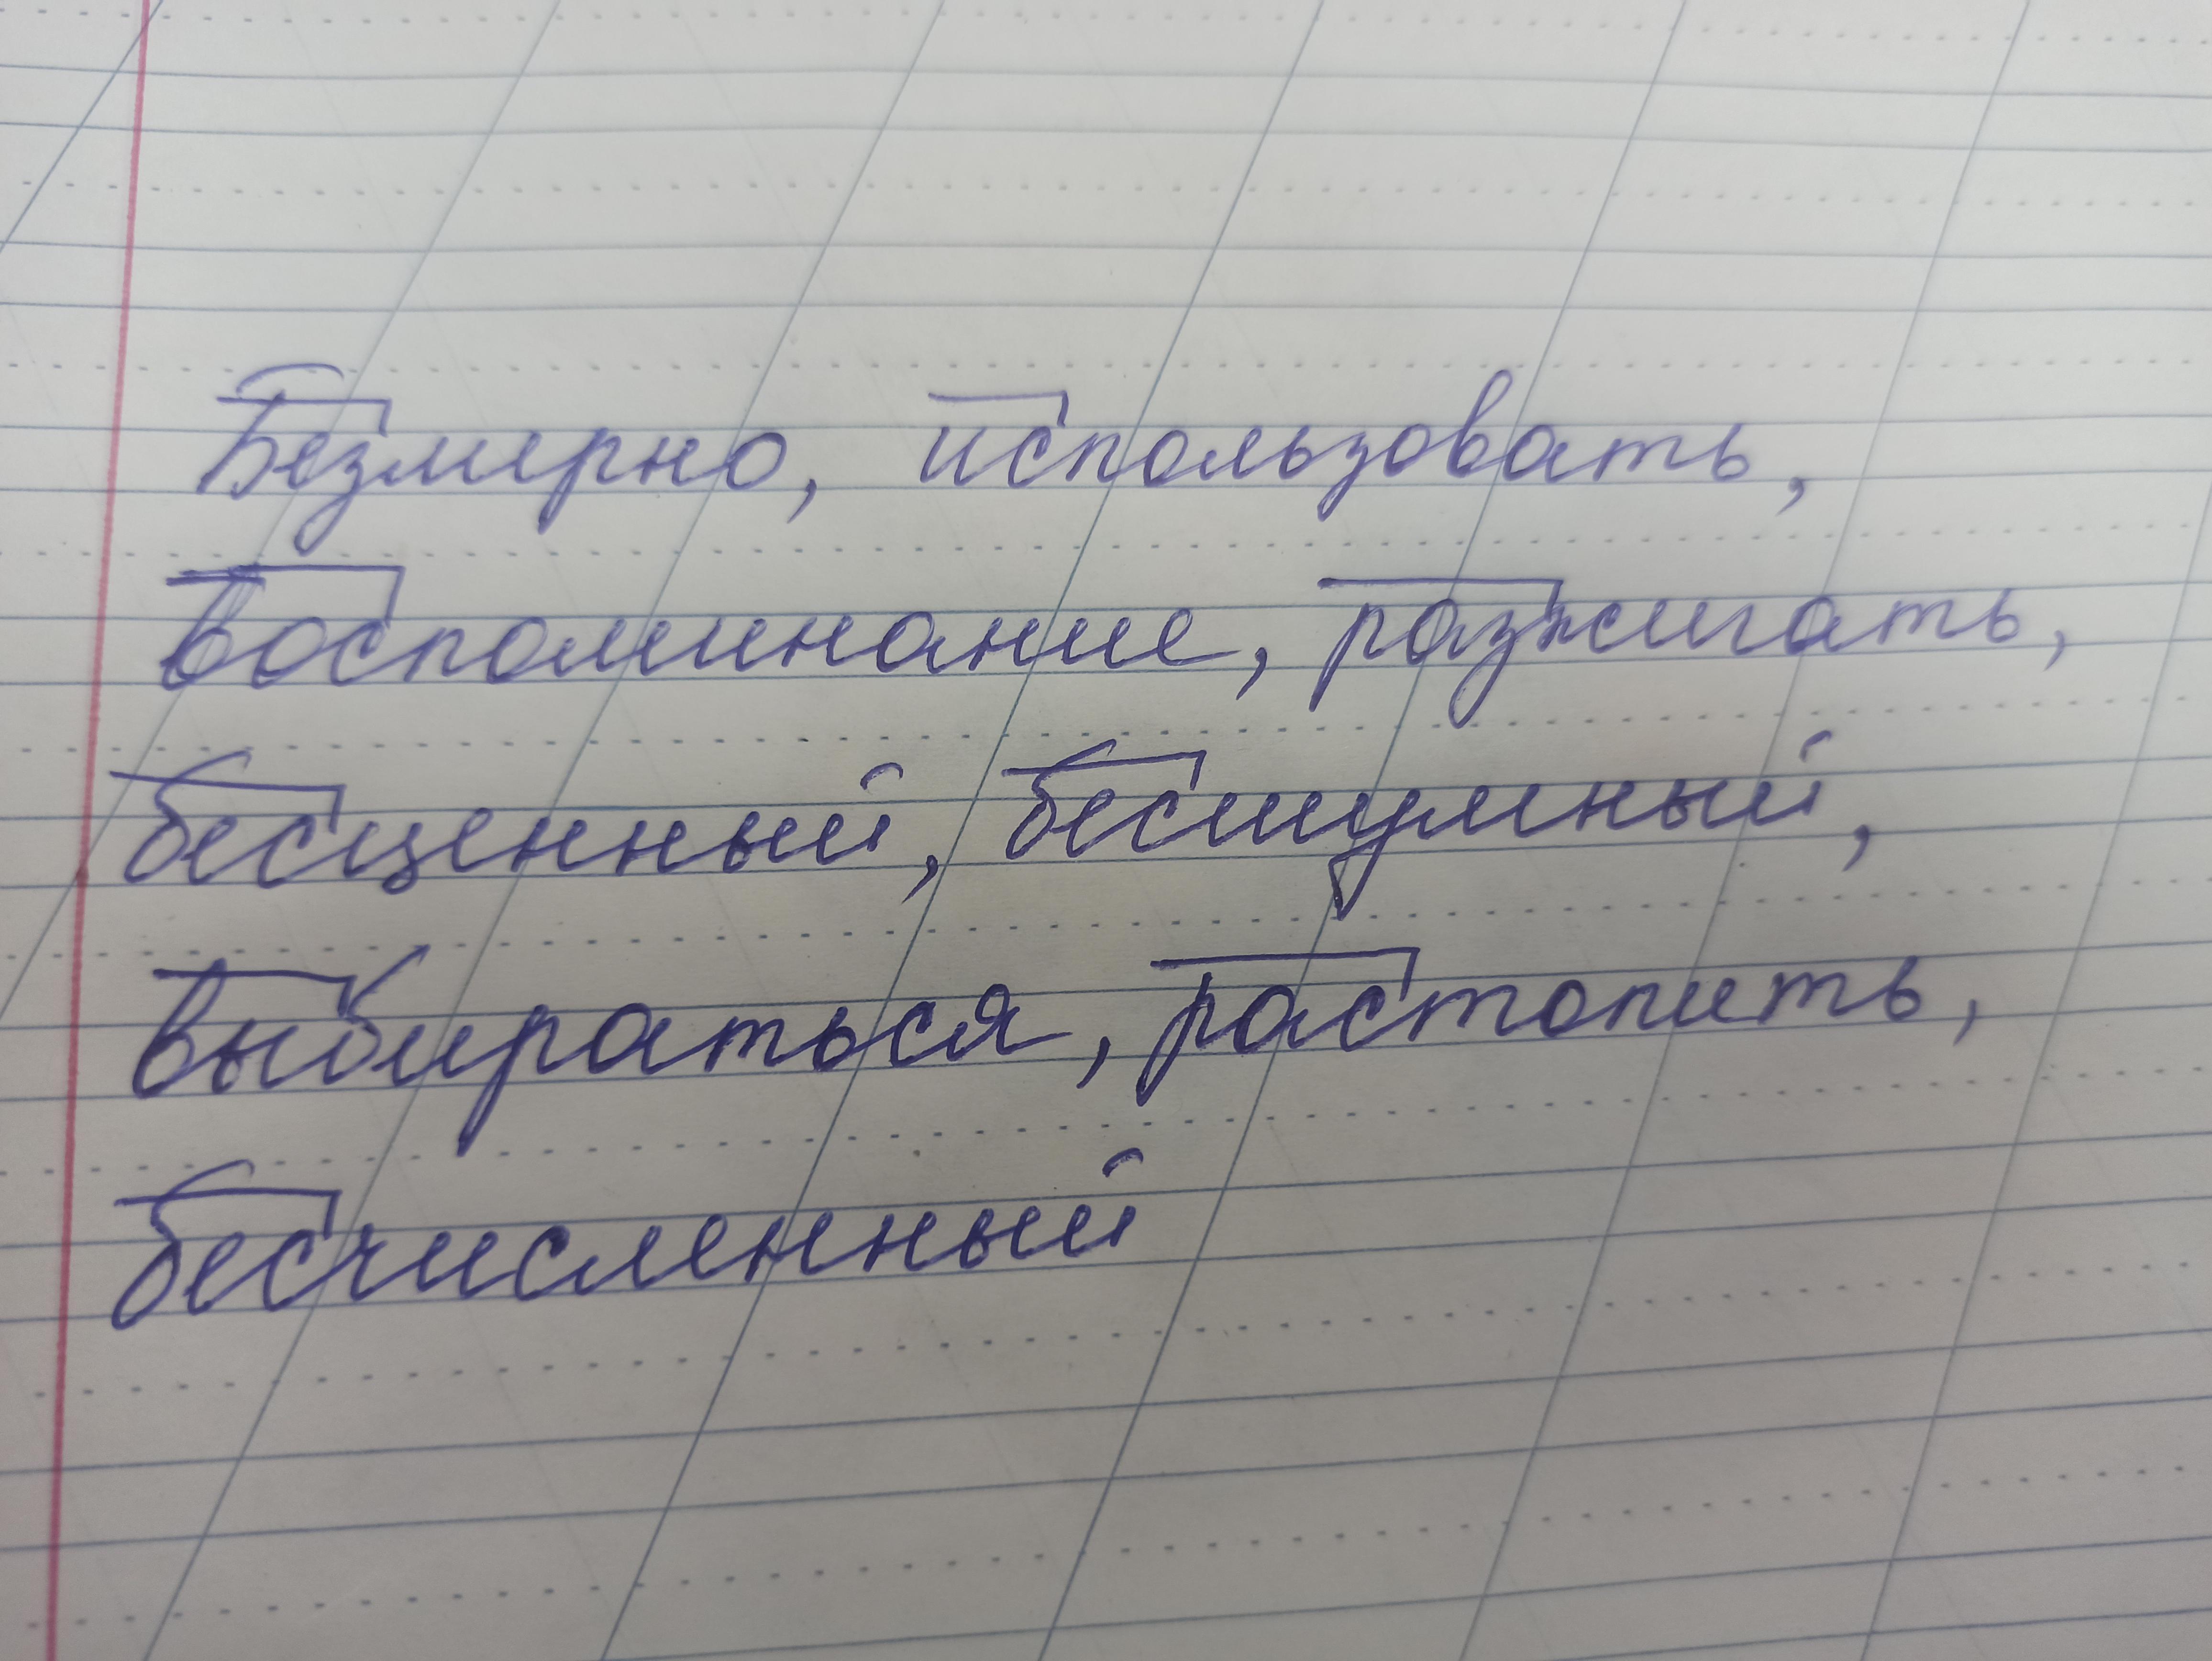 Безмерно, использовать,
воспоминание, разжигать,
бесценный, бесшумный,
выбираться, растопить,
бесчисленный